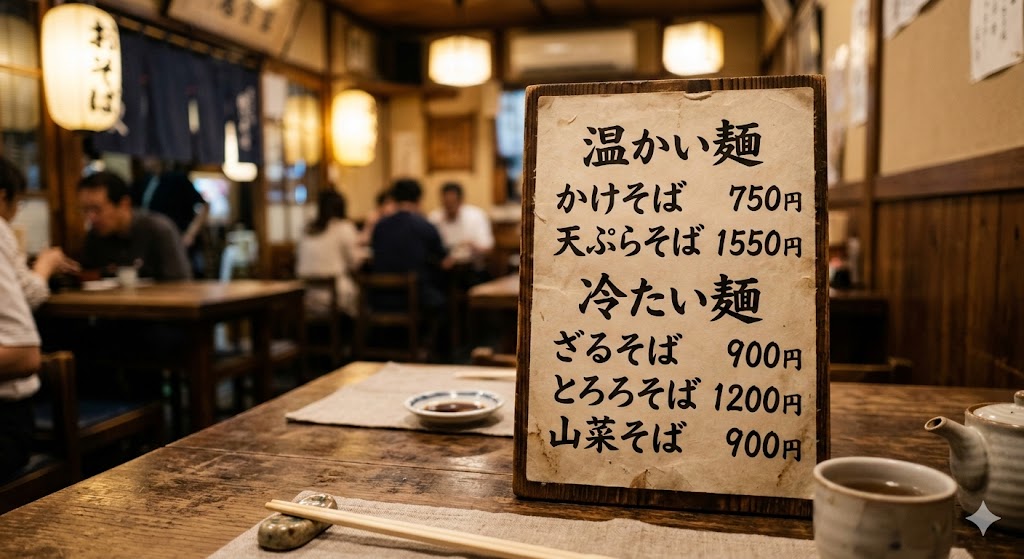 おそば
温かい麺
かけそば 750円
天ぷらそば 1550円
冷たい麺
ざるそば 900円
とろろそば 1200円
山菜そば 900円